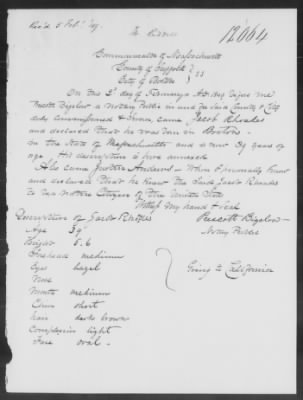 Rec'd 5 Feb'y /49.
12664
Commonwealth of Massachusetts
County of Suffolk } SS
City of Boston }
On this 2d day of February A.D. day before me
Prescott Bigelow a Notary Public in and for said County & City
duly Commissioned & Sworn, came Jacob Rhoades
and declared that he was born in Boston
in the State of Massachusetts and is now 39 years of
age His description is here annexed
Also came Andrews whom I personally know
and declared that he knew the said Jacob Rhoades
to be a Native Citizen of the United States
Witness my hand & seal
Prescott Bigelow
Notary Public
Description of Jacob Rhoades
Age 39
Height 5.6
Forehead medium
Eyes hazel
Nose
Mouth medium
Chin short
hair dark brown
Complexion light
Face oval
Going to California